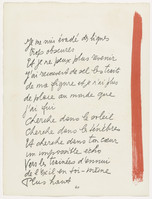 Je me suis évadé des lignes
Trop obscures
Et je ne peux plus revenir
J'ai recouvert de sel les traits
de ma figure et je n'ai plus
de place au monde que
j'ai fui
Cherche dans le soleil
Cherche dans les ténèbres
Et cherche dans ton cœur
un impossible echo
Vers la traînée d'ennui
de l'exil en soi-même
Plus haut